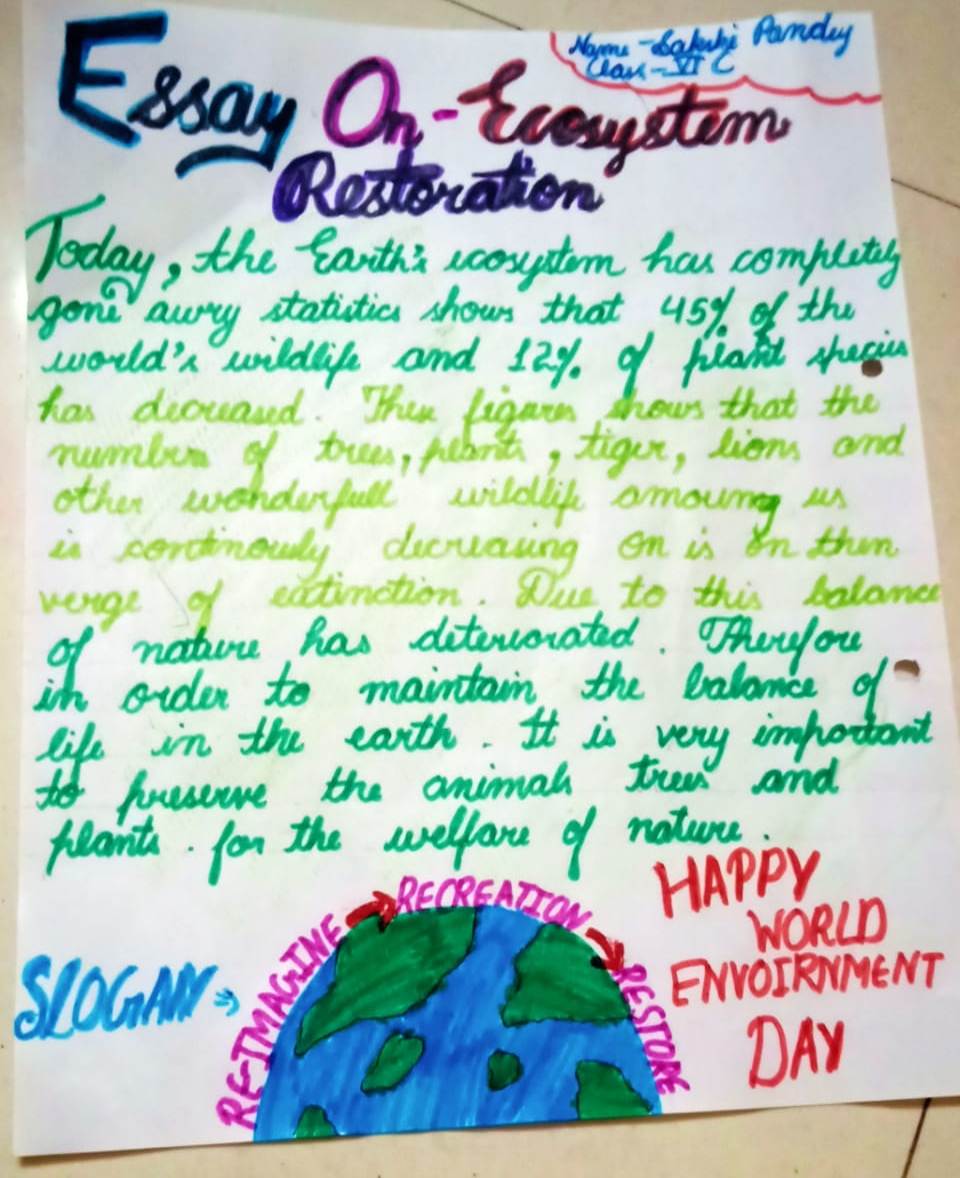 Name - Sakshi Pandey
Class - VI C
Essay On - Ecosystem
Restoration
Today, the Earth's ecosystem has completely
gone awry statistics shows that 45% of the
world's wildlife and 12% of plant species
has decreased. These figures shows that the
numbers of trees, plants, tiger, lions and
other wonderfull wildlife amoung us
is continously decreasing on is on then
verge of extinction. Due to this balance
of nature has deteriorated. Therefore
in order to maintain the balance of
life in the earth. It is very important
to preserve the animals trees and
plants. for the welfare of nature.
SLOGAN
RE-IMAGINE RECREATION RESTORE
HAPPY
WORLD
ENVOIRNMENT
DAY